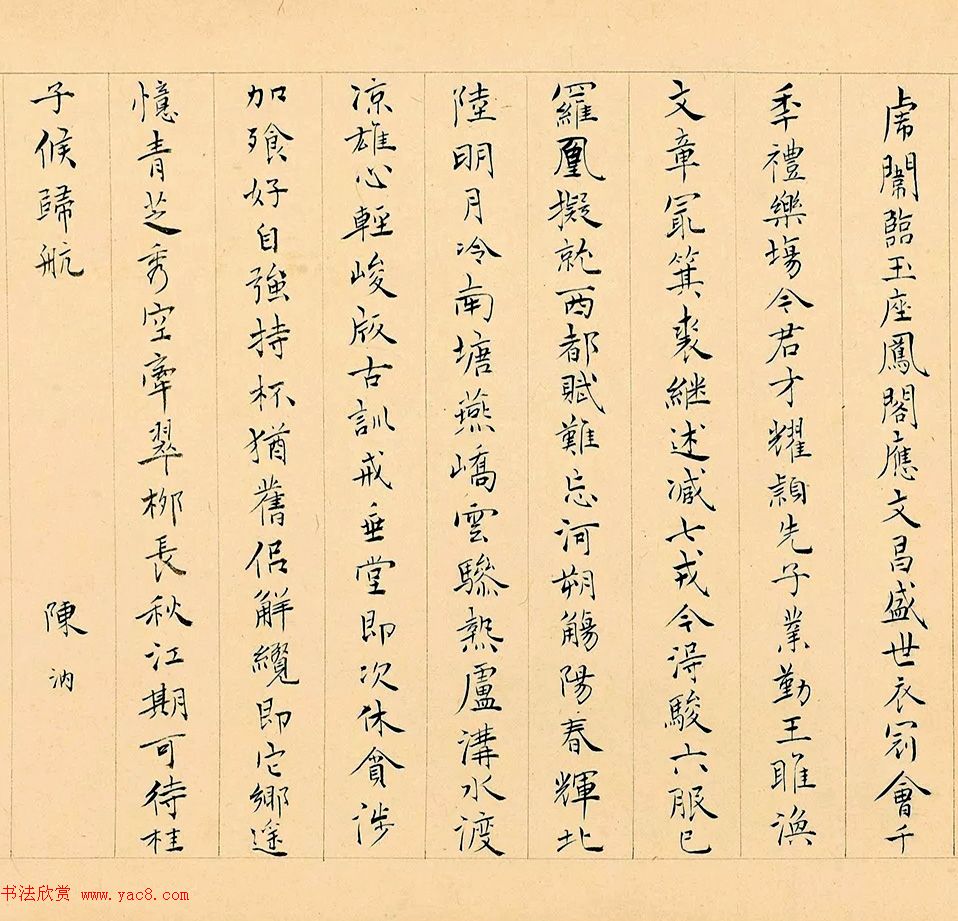 虎闈臨玉座鳳閣應文昌盛世衣冠會千
季禮樂場令君才耀穎先子業勤王雎渙
文章冣箕裘継述減七戎令淂駿六服已
羅凰擬就西都賦難忘河朔觴陽春輝北
陸明月冷南塘燕嶠雲驂熱盧溝水渡
凉雄心輕峻阪古訓戒垂堂即次休貪涉
加飱好自強持杯猶舊侣解纜即它鄉途
憶青芝秀空牽翠栁長秋江期可待桂
子候歸航
陳汭
书法欣赏 www.yac8.com